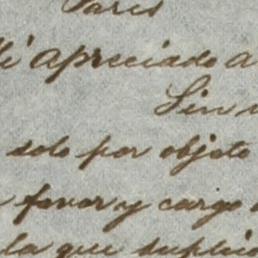 Paris
Mi apreciado a
Sin
solo por objeto
favor y cargo
la que suplic